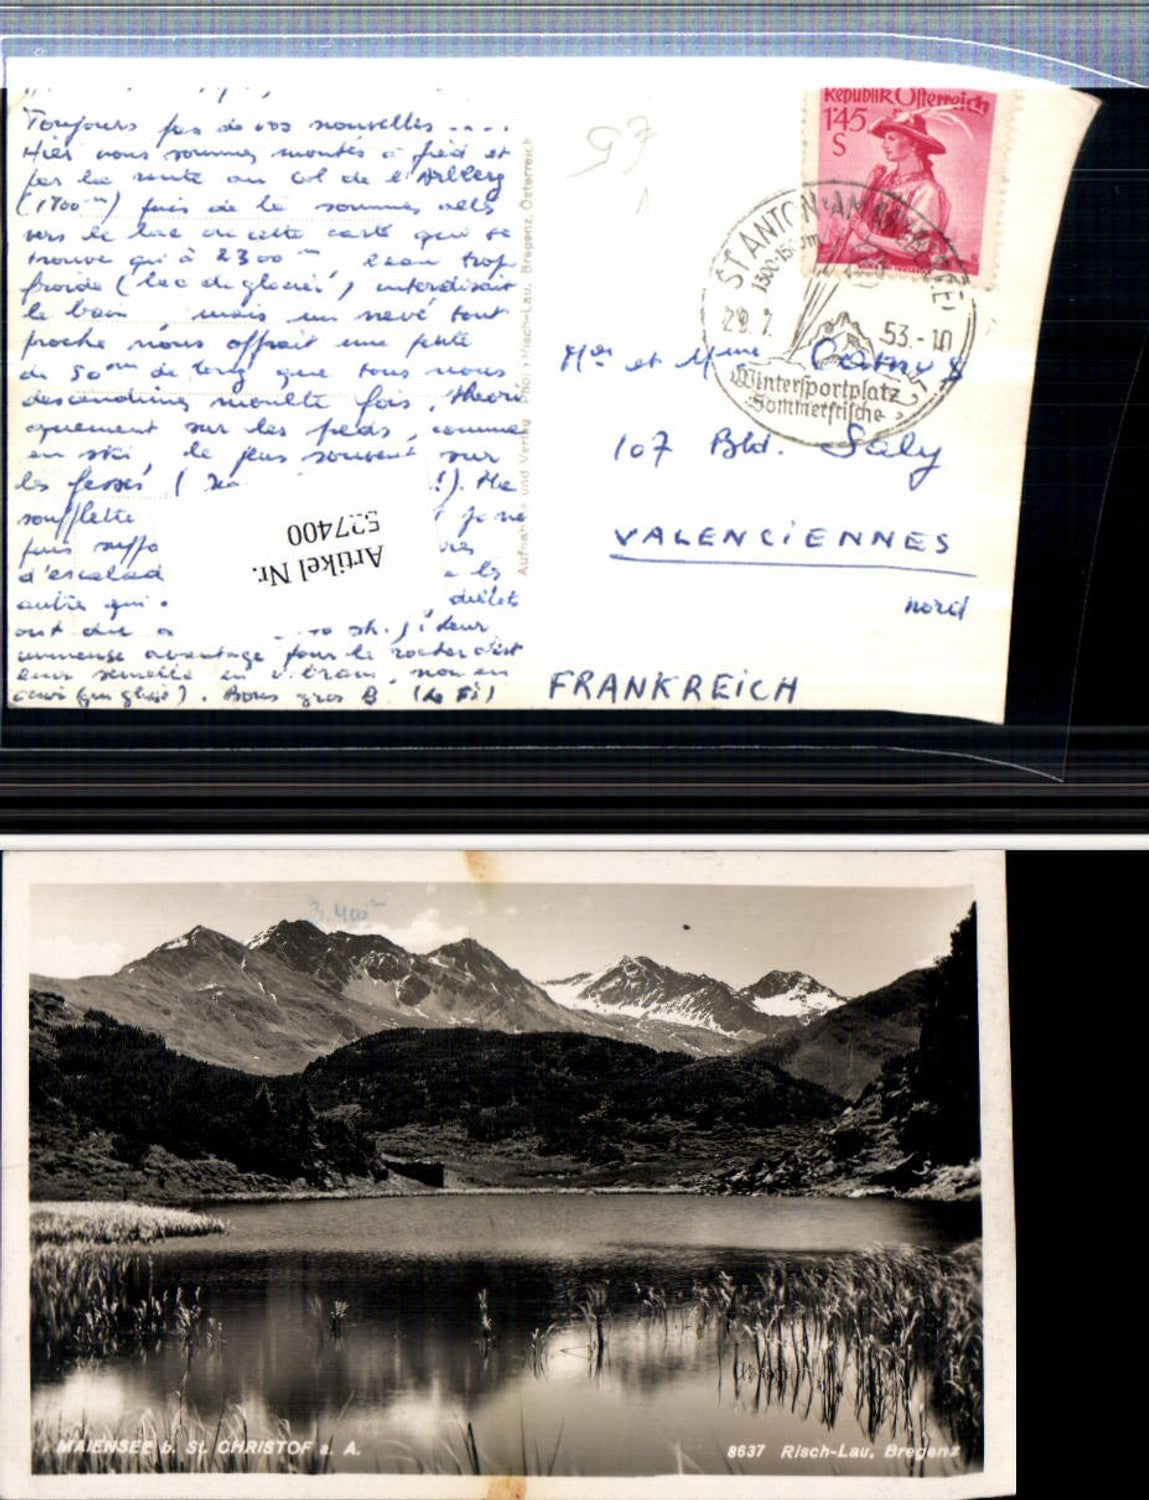 Toujours pas de vos nouvelles ....
Hier nous sommes montés à pied et
par la route au col de l'Arlberg
(1800 m) puis de là sommes allés
vers le lac de cette carte qui se
trouve qui à 2300 m, l'eau trop
froide (lac de glacier) interdisait
le bain, mais un névé tout
proche nous offrait une pente
de 50 m de long que tous nous
descendîmes moulte fois, théori
quement sur les pieds, comme
en ski, le plus souvent sur
les fesses ( !). Ma
soufflette je ne
puis
d'escalad
autres qui
ont dû
immense avantage pour le rocher c'est
leur semelle en vibram, non en
cuir (qui glisse). Bons gros B
Artikel Nr.
527400
Aufnahme und Verlag Photo Risch-Lau, Bregenz, Österreich
97
1
Republik Österreich
1'45
S
ST ANTON AM ARLBERG
1300-15 m
29. 7. 53.-10
Wintersportplatz
Sommerfrische
Mr et Mme Camus
107 Bld. Saly
VALENCIENNES
Nord
FRANKREICH
3.400 m
MAIENSEE b. St. CHRISTOF a. A.
8637 Risch-Lau, Bregenz